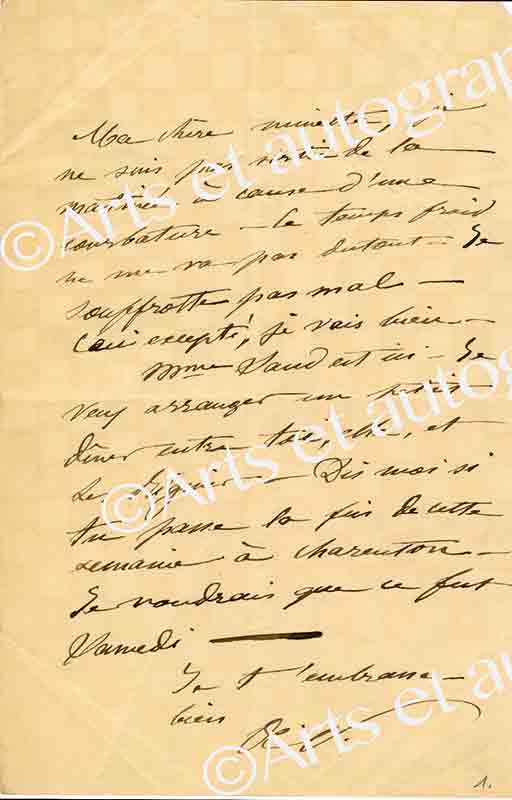 Ma chère minette, je
ne suis pas sortie de la
matinée à cause d'une
courbature – le temps froid
ne me va pas dutout – Je
souffrotte pas mal –
Ceci excepté, je vais bien –
Mme Sand est ici – Je
veux arranger un petit
dîner entre toi, elle, et
– Dis moi si
tu passe la fin de cette
semaine à Charenton –
Je voudrais que ce fut
Samedi —
Je t'embrasse
bien
1.
©Arts et autographes
©Arts et autographes
©Arts et autographes